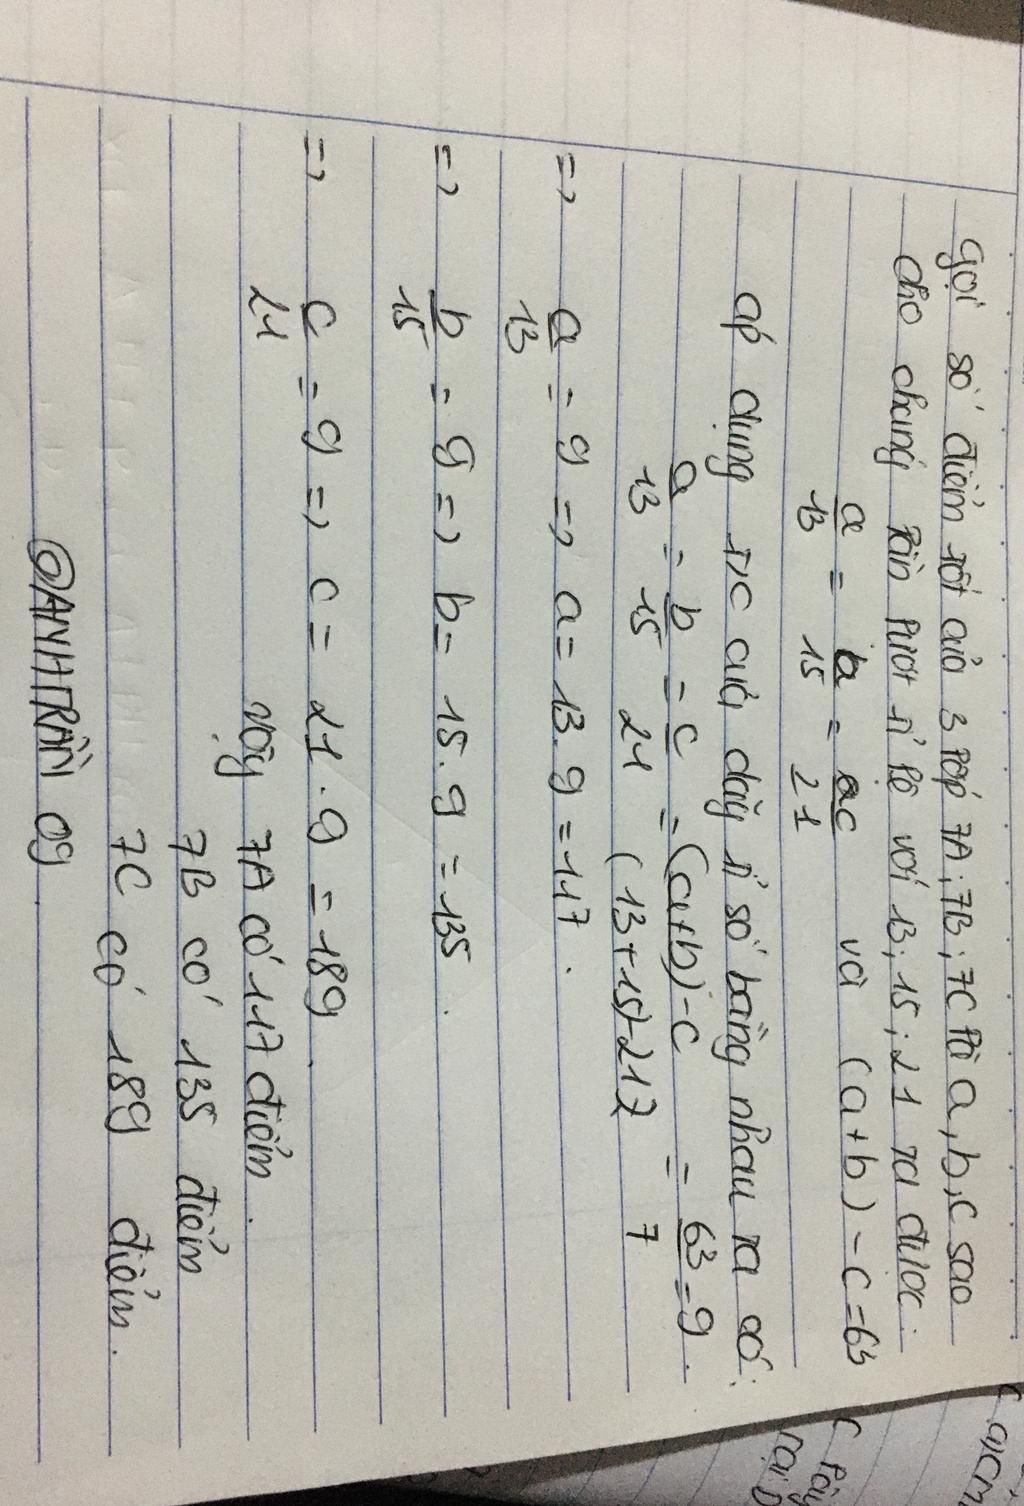 gọi số điểm tốt của 3 lớp 7A; 7B; 7C là a, b, c sao
cho chúng lần lượt tỉ lệ với 13; 15; 21 ta được:
a/13 = b/15 = c/21 và (a+b) - c = 63
áp dụng t/c của dãy tỉ số bằng nhau ta có:
a/13 = b/15 = c/21 = (a+b) - c / (13+15)-21 = 63/7 = 9.
=> a/13 = 9 => a = 13.9 = 117.
=> b/15 = 9 => b = 15.9 = 135.
=> c/21 = 9 => c = 21.9 = 189.
vậy 7A có 117 điểm.
7B có 135 điểm
7C có 189 điểm.
@ANHTRẦN 09